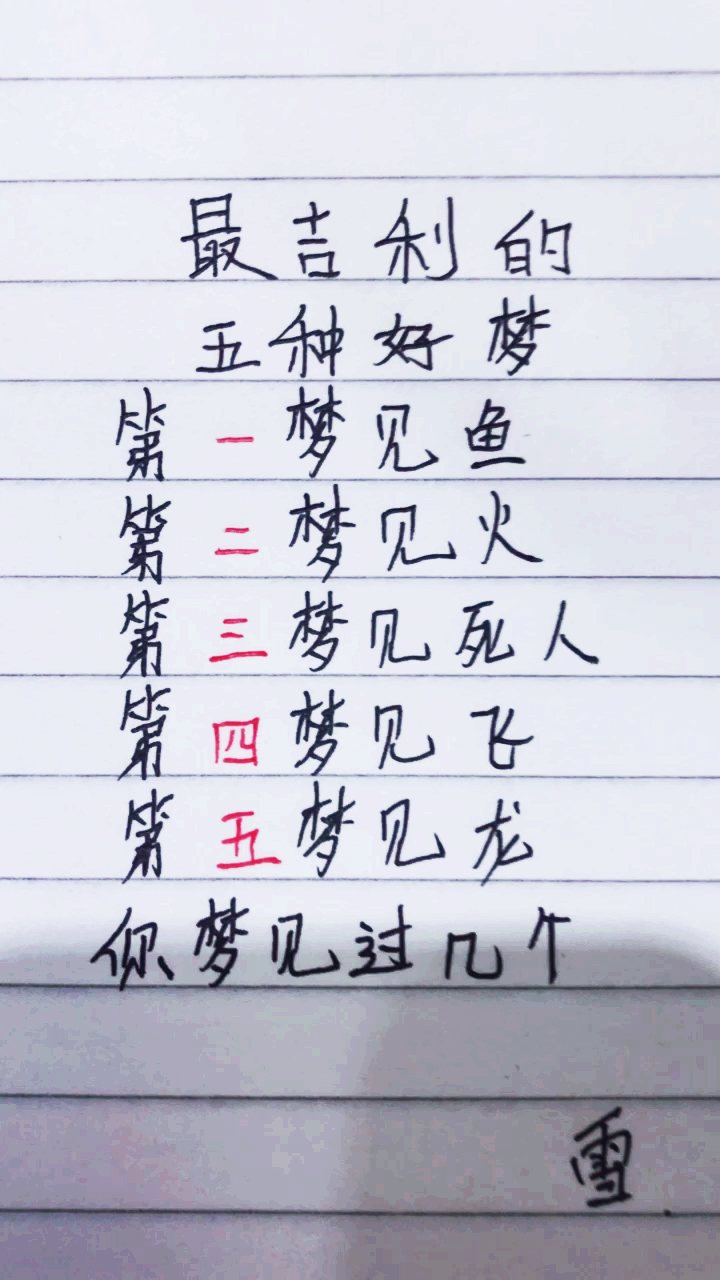 最吉利的
五种好梦
第一梦见鱼
第二梦见火
第三梦见死人
第四梦见飞
第五梦见龙
你梦见过几个
雪